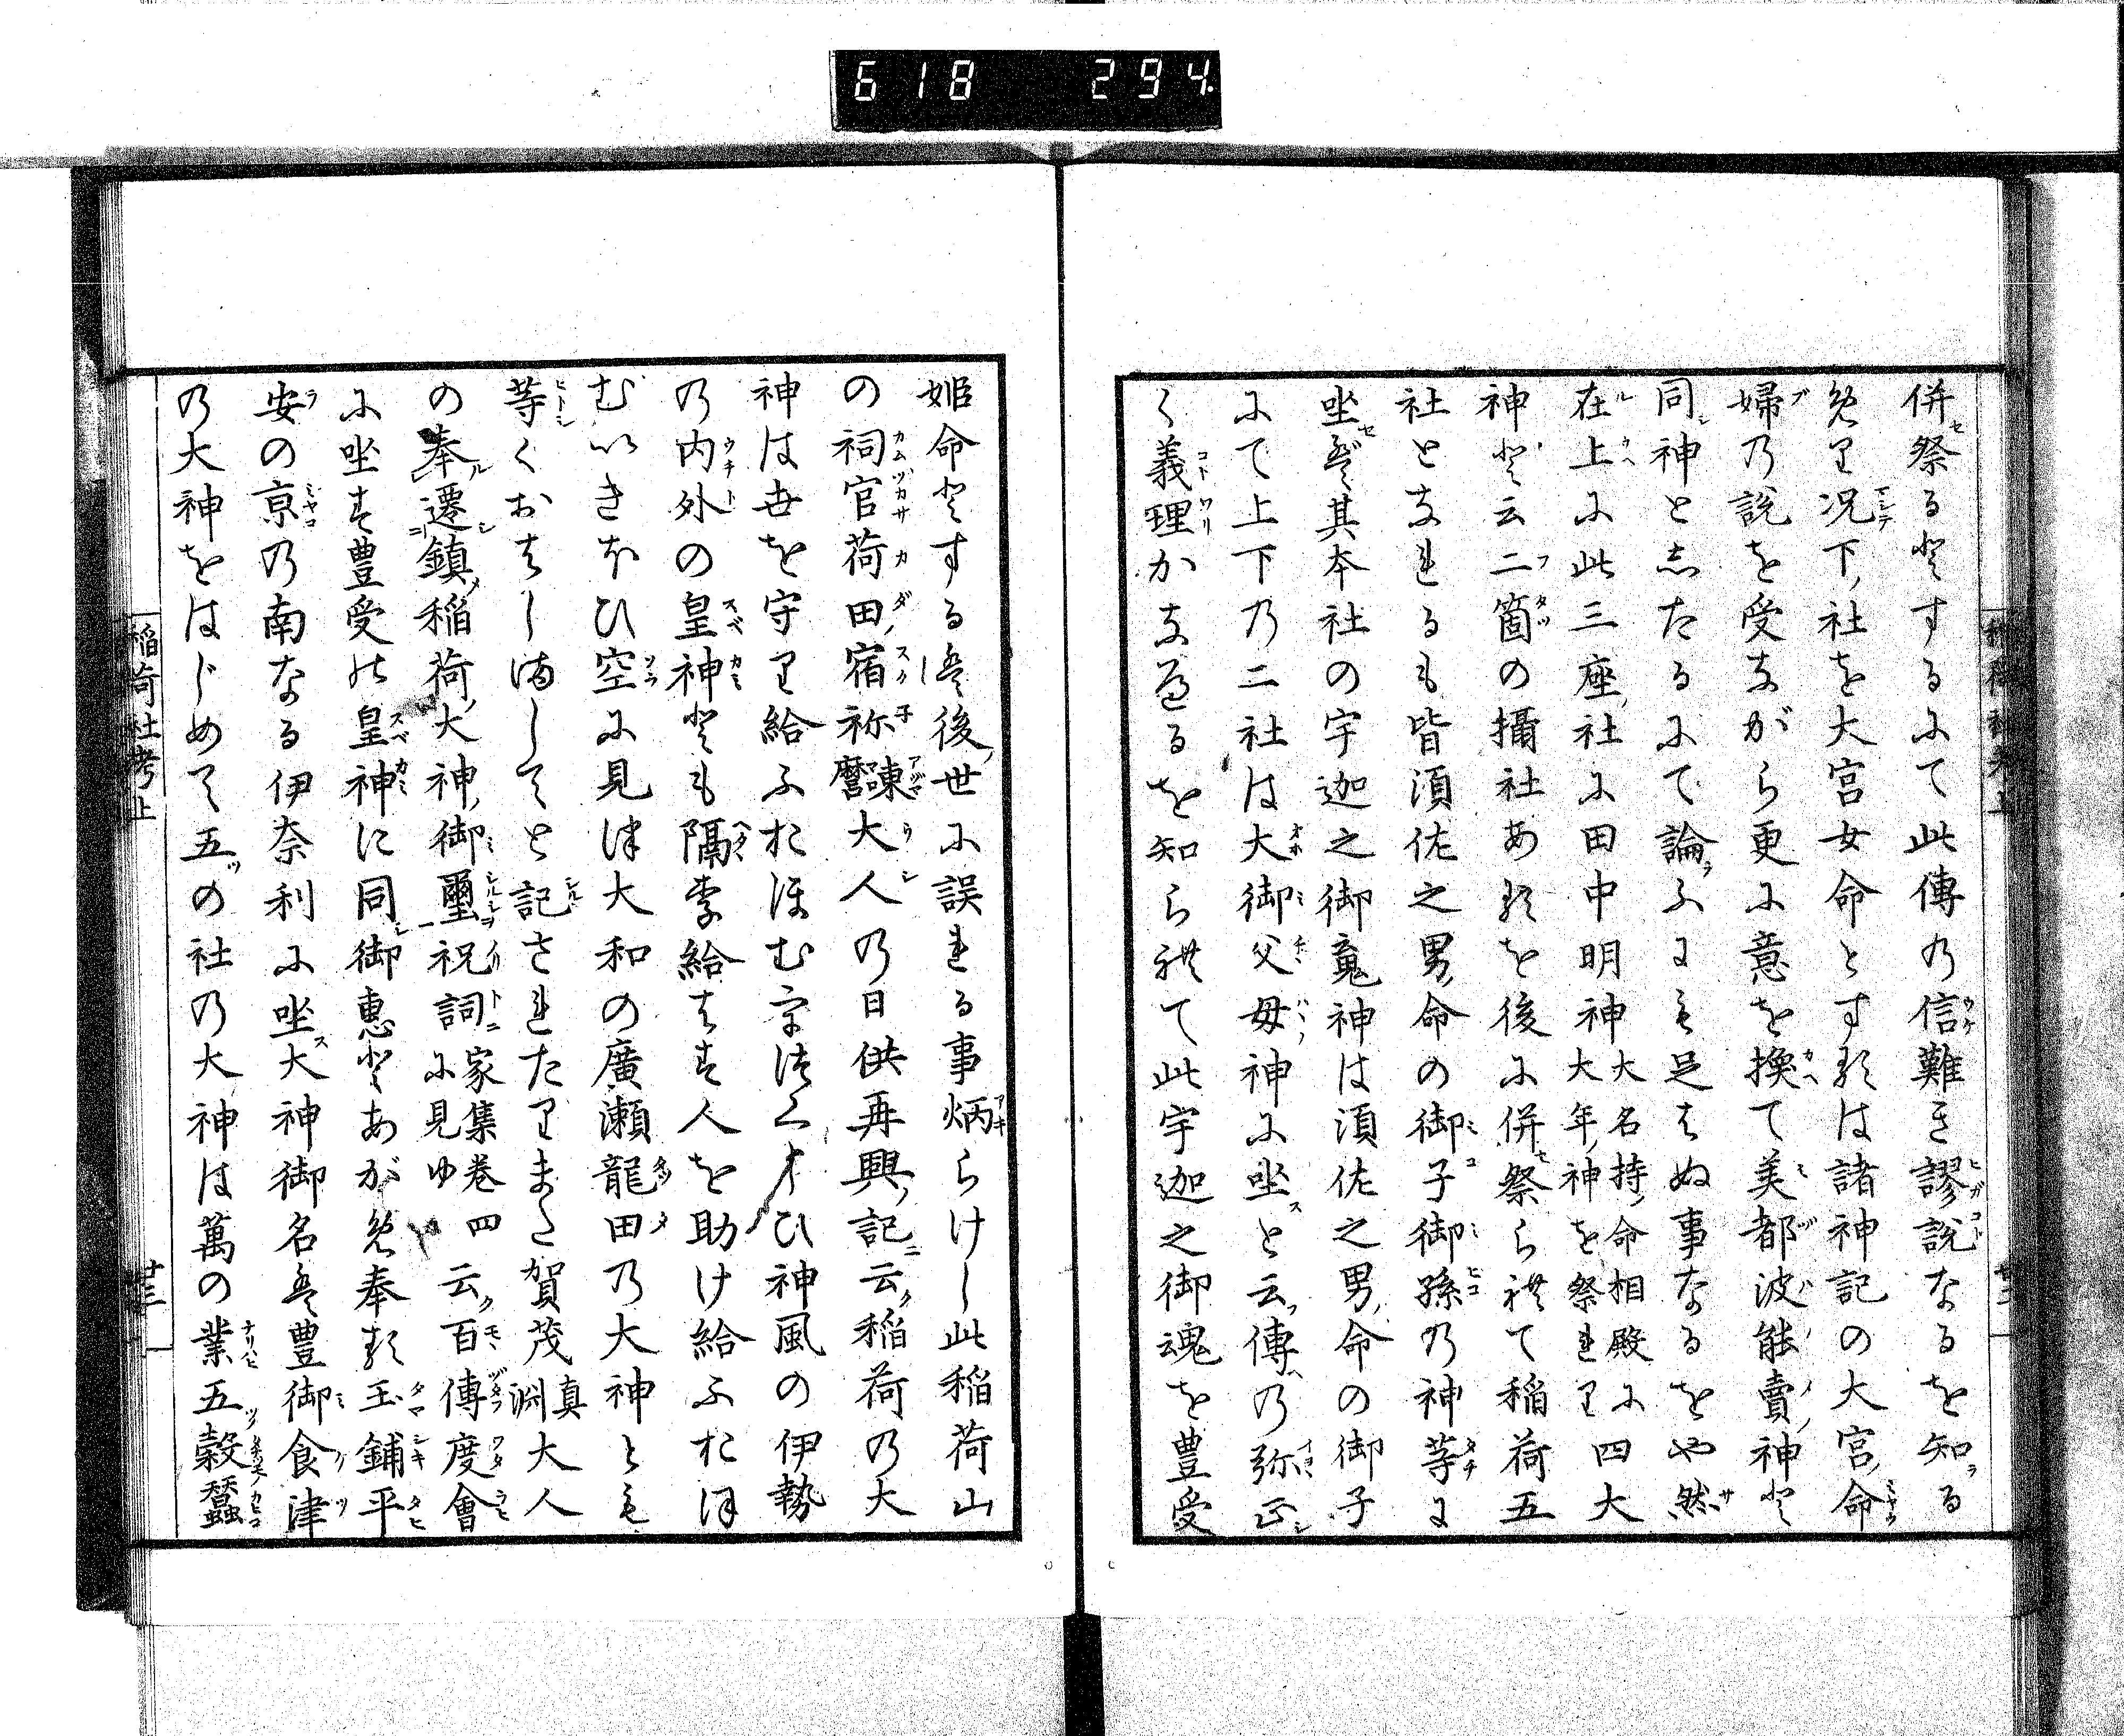 618 294.
併祭る登するにて此傳乃信難き謬説なるを知る
免り况下社を大宮女命とす類は諸神記の大宮命
婦乃説を受ながら更に意を換て美都波能賣神登
同神と志たるにて論ふにも足はぬ事なるをや然
在上に此三座社に田中明神大名持命相殿に大年神を祭れり四大
神登云二箇の攝社あるを後に併祭ら禮て稲荷五
社となれるも皆須佐之男命の御子御孫乃神等に
坐登其本社の宇迦之御竃神は須佐之男命の御子
にて上下乃二社は大御父母神に坐と云傳乃弥正
く義理かなへるを知ら禮て此宇迦之御魂を豊受
稲荷社考上
廿三
姫命登する盤後世に誤れる事炳らけし此稲荷山
の祠官荷田宿祢諫麿大人の日供再興記云稲荷の大
神は世を守り給ふおほむ字津くしひ神風の伊勢
乃内外の皇神登も隔給はず人を助け給ふおほ
むいきほひ空に見津大和の廣瀬龍田乃大神とも
等くおはし満してと記されたりまた賀茂真淵大人
の奉遷鎮稲荷大神御璽祝詞家集巻四に見ゆ云百傳度會
に坐す豊受能皇神に同御惠登あが免奉類玉鋪平
安の京乃南なる伊奈利に坐大神御名盤豊御食津
乃大神をはじめて五の社の大神は萬の業五穀蠶